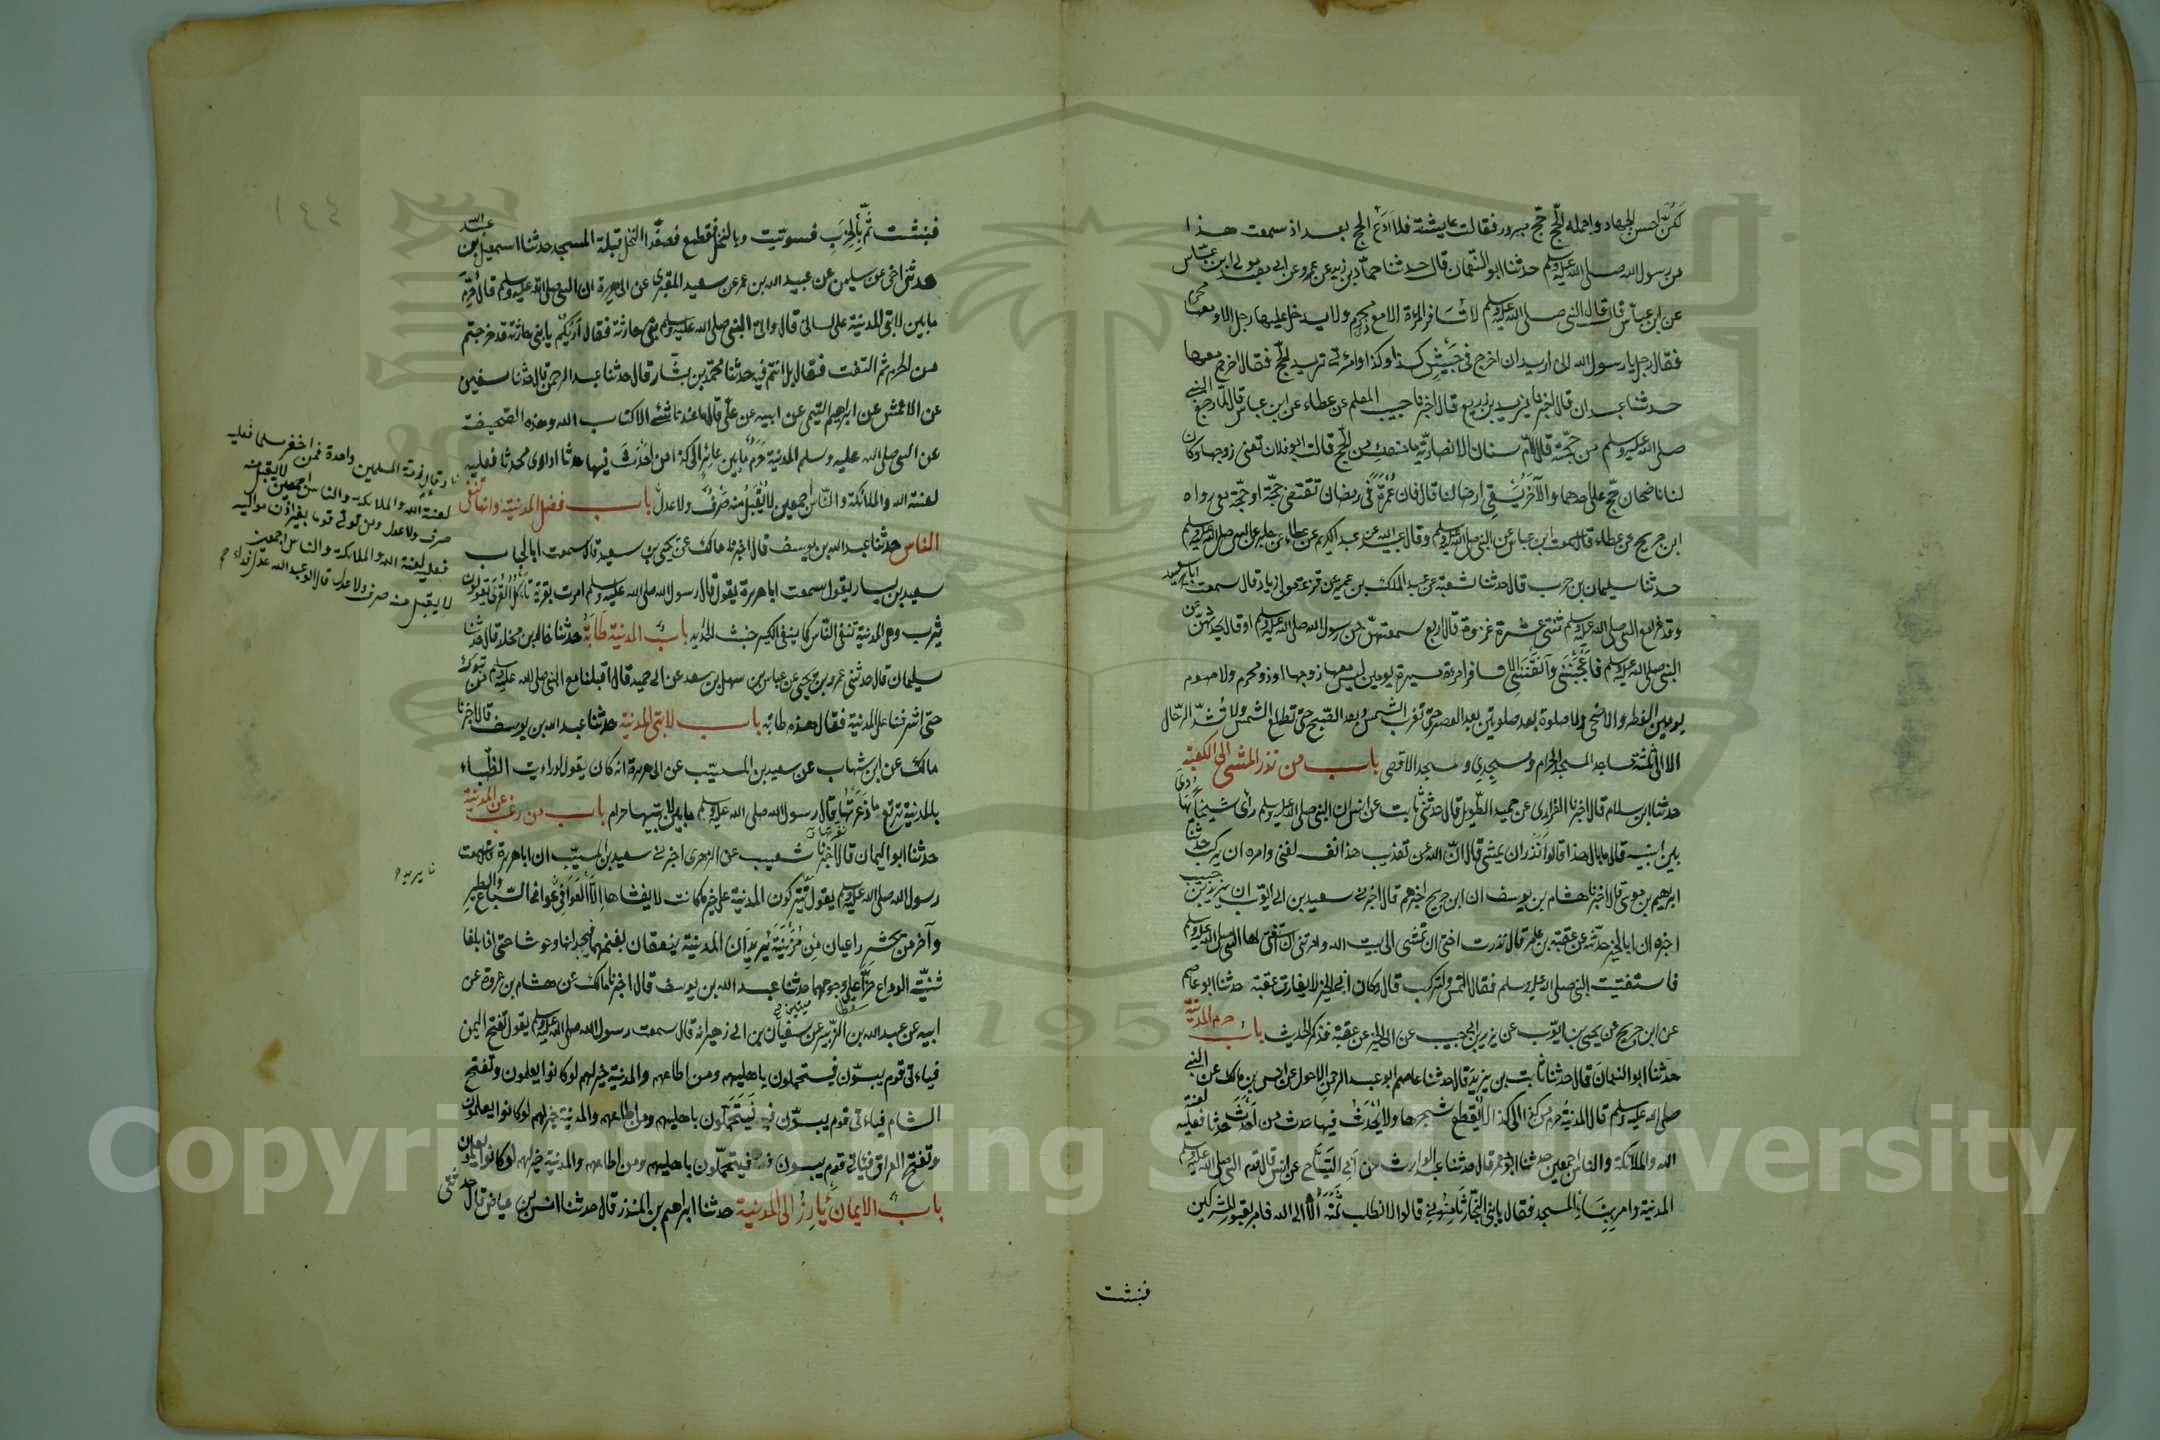 لكن احسن الجهاد واجمله الحج حج مبرور فقالت عايشة فلا ادع الحج بعد اذ سمعت هذا
من رسول الله صلى الله عليه وسلم حدثنا ابو النعمان قال حدثنا حماد بن زيد عن عمرو عن ابي معبد مولى ابن عباس
عن ابن عباس قال قال النبي صلى الله عليه وسلم لا تسافر المرأة الا مع ذي محرم ولا يدخل عليها رجل الا ومعها محرم
فقال رجل يا رسول الله اني اريد ان اخرج في جيش كذا وكذا وامرأتي تريد الحج فقال اخرج معها
حدثنا عبدان قال اخبرنا يزيد بن زريع قال اخبرنا حبيب المعلم عن عطاء عن ابن عباس قال لما رجع النبي
صلى الله عليه وسلم من حجته قال لام سنان الانصارية ما منعك من الحج قالت ابو فلان تعني زوجها وكان
لنا ناضحان حج على احدهما والآخر يسقي ارضا لنا قال فان عمرة في رمضان تقتضي حجة او حجة معي رواه
ابن جريج عن عطاء قال سمعت ابن عباس عن النبي صلى الله عليه وسلم وقال عبيد الله عن عبد الكريم عن عطاء عن جابر عن النبي صلى الله عليه وسلم
حدثنا سليمان بن حرب قال حدثنا شعبة عن عبد الملك بن عمير عن قزعة مولى زياد قال سمعت ابا سعيد
وقد غزا مع النبي صلى الله عليه وسلم ثنتي عشرة غزوة قال اربع سمعتهن من رسول الله صلى الله عليه وسلم او قال يحدثهن عن
النبي صلى الله عليه وسلم فاعجبنني وآنقنني ان لا تسافر امرأة مسيرة يومين ليس معها زوجها او ذو محرم ولا صوم
يومين الفطر والاضحى ولا صلوة بعد صلوتين بعد العصر حتى تغرب الشمس وبعد الصبح حتى تطلع الشمس ولا تشد الرحال
الا الى ثلثة مساجد المسجد الحرام ومسجدي ومسجد الاقصى باب من نذر المشي الى الكعبة
حدثنا ابن سلام قال اخبرنا الفزاري عن حميد الطويل قال حدثني ثابت عن انس ان النبي صلى الله عليه وسلم رأى شيخا يهادى
بين ابنيه قال ما بال هذا قالوا نذر ان يمشي قال ان الله عن تعذيب هذا نفسه لغني وامره ان يركب حدثنا
ابرهيم بن موسى قال اخبرنا هشام بن يوسف ان ابن جريج اخبرهم قال اخبرني سعيد بن ابي ايوب ان يزيد بن حبيب
اخبره ان ابا الخير حدثه عن عقبة بن عامر قال نذرت اختي ان تمشي الى بيت الله وامرتني ان استفتي لها النبي صلى الله عليه وسلم
فاستفتيت النبي صلى الله عليه وسلم فقال لتمش ولتركب قال وكان ابو الخير لا يفارق عقبة حدثنا ابو عاصم
عن ابن جريج عن يحيى بن ايوب عن يزيد بن ابي حبيب عن ابي الخير عن عقبة فذكر الحديث باب حرم المدينة
حدثنا ابو النعمان قال حدثنا ثابت بن يزيد قال حدثنا عاصم ابو عبد الرحمن الاحول عن انس بن مالك عن النبي
صلى الله عليه وسلم قال المدينة حرم من كذا الى كذا لا يقطع شجرها ولا يحدث فيها حدث من احدث حدثا فعليه لعنة
الله والملائكة والناس اجمعين حدثنا ابو معمر قال حدثنا عبد الوارث عن ابي التياح عن انس قال قدم النبي صلى الله عليه وسلم
المدينة وامر ببناء المسجد فقال يا بني النجار ثامنوني قالوا لا نطلب ثمنه الا الى الله فامر بقبور المشركين
فنبشت
فنبشت ثم بالخرب فسويت وبالنخل فقطع فصفوا النخل قبلة المسجد حدثنا اسمعيل بن عبد الله
حدثني اخي عن سليمن عن عبيد الله بن عمر عن سعيد المقبري عن ابي هريرة ان النبي صلى الله عليه وسلم قال حرم
ما بين لابتي المدينة على لساني قال واتى النبي صلى الله عليه وسلم بني حارثة فقال اريكم يا بني حارثة قد خرجتم
من الحرم ثم التفت فقال بل انتم فيه حدثنا محمد بن بشار قال حدثنا عبد الرحمن قال حدثنا سفين
عن الاعمش عن ابراهيم التيمي عن ابيه عن علي قال ما عندنا شئ الا كتاب الله وهذه الصحيفة
عن النبي صلى الله عليه وسلم المدينة حرم ما بين عائر الى كذا من احدث فيها حدثا او آوى محدثا فعليه
لعنة الله والملائكة والناس اجمعين لا يقبل منه صرف ولا عدل باب فضل المدينة وانها تنفي
الناس حدثنا عبد الله بن يوسف قال اخبرنا مالك عن يحيى بن سعيد قال سمعت ابا الحباب
سعيد بن يسار يقول سمعت ابا هريرة يقول قال رسول الله صلى الله عليه وسلم امرت بقرية تأكل القرى يقولون
يثرب وهي المدينة تنفي الناس كما ينفي الكير خبث الحديد باب المدينة طابة حدثنا خالد بن مخلد قال حدثنا
سليمان قال حدثني عمرو بن يحيى عن عباس بن سهل بن سعد عن ابي حميد قال اقبلنا مع النبي صلى الله عليه وسلم من تبوك
حتى اشرفنا على المدينة فقال هذه طابه باب لابتي المدينة حدثنا عبد الله بن يوسف قال اخبرنا
مالك عن ابن شهاب عن سعيد بن المسيب عن ابي هريرة انه كان يقول لو رايت الظباء
بالمدينة ترتع ما ذعرتها قال رسول الله صلى الله عليه وسلم ما بين لابتيها حرام باب من رغب عن المدينة
حدثنا ابو اليمان قال اخبرنا شعيب عن الزهري اخبرني سعيد بن المسيب ان ابا هريرة قال سمعت
رسول الله صلى الله عليه وسلم يقول تتركون المدينة على خير ما كانت لا يغشاها الا العوافي عوافي السباع والطير
وآخر من يحشر راعيان من مزينة يريدان المدينة ينعقان بغنمهما فيجدانها وحوشا حتى اذا بلغا
ثنية الوداع خرا على وجوههما حدثنا عبد الله بن يوسف قال اخبرنا مالك عن هشام بن عروة عن
ابيه عن عبد الله بن الزبير عن سفيان بن ابي زهير انه قال سمعت رسول الله صلى الله عليه وسلم يقول تفتح اليمن
فياتي قوم يبسون فيتحملون باهليهم ومن اطاعهم والمدينة خير لهم لو كانوا يعلمون وتفتح
الشام فياتي قوم يبسون فيتحملون باهليهم ومن اطاعهم والمدينة خير لهم لو كانوا يعلمون
وتفتح العراق فياتي قوم يبسون فيتحملون باهليهم ومن اطاعهم والمدينة خير لهم لو كانوا يعلمون
باب الايمان يأرز الى المدينة حدثنا ابراهيم بن المنذر قال حدثنا انس بن عياض قال حدثني
وقال ذمة المسلمين واحدة فمن اخفر مسلما فعليه
لعنة الله والملائكة والناس اجمعين لا يقبل منه
صرف ولا عدل ومن تولى قوما بغير اذن مواليه
فعليه لعنة الله والملائكة والناس اجمعين
لا يقبل منه صرف ولا عدل قال ابو عبد الله عدل فداء
Copyright © King Saud University
1957